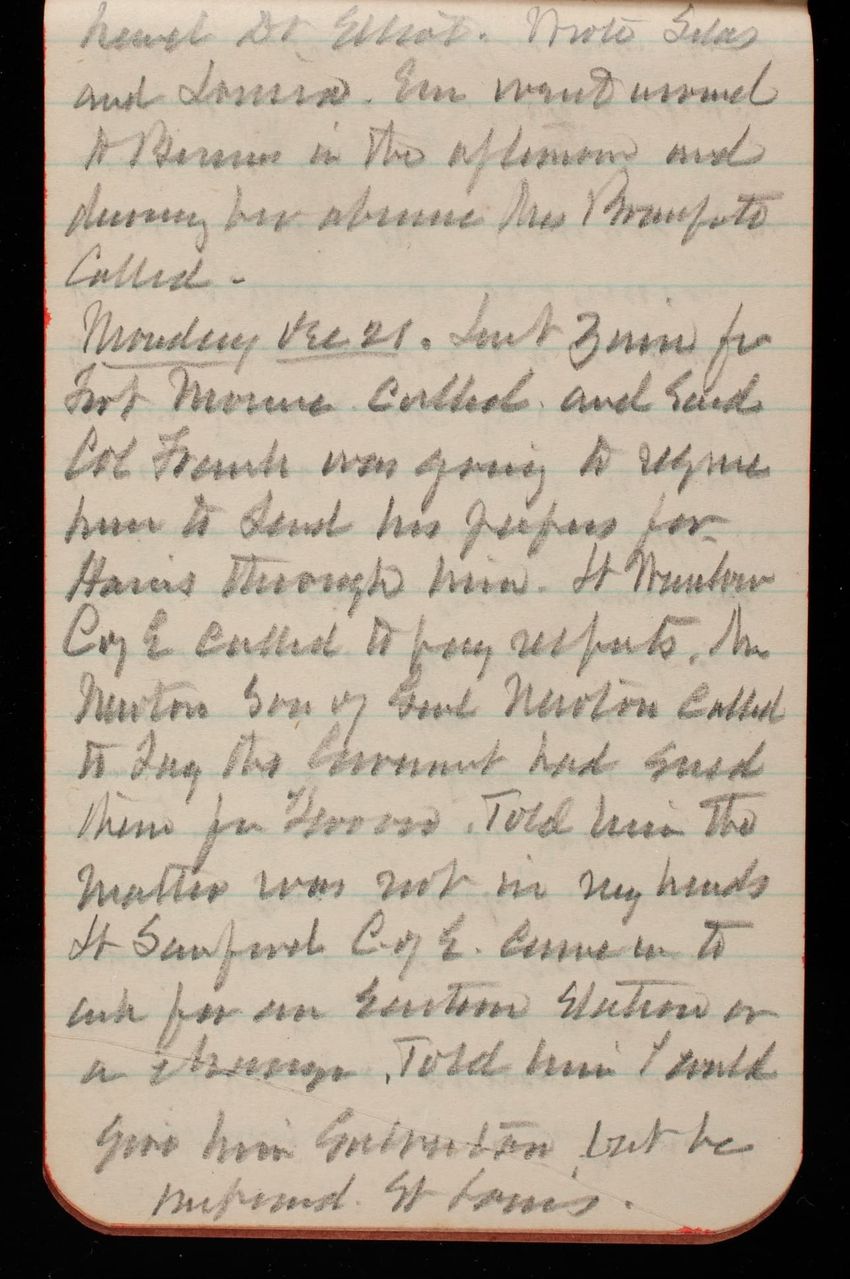 Dr Elliot. Wrote Silas
and Louisa. Em went around
to Bernies in the afternoon and
during her absence Mrs
Called -
Monday Dec 21. Lieut Zinn for
Fort Monroe called and said
Col Frank was going to require
him to send his papers for
through him. Lt Winslow
C of E called to pay respects. Mr
Newton son of Genl Newton called
to say the Government had sued
them for . Told him the
matter was not in my hands
Lt Sanford C of E. came in to
ask for an Eastern Station or
a change. Told him I could
give him Galveston but he
preferred St Louis.